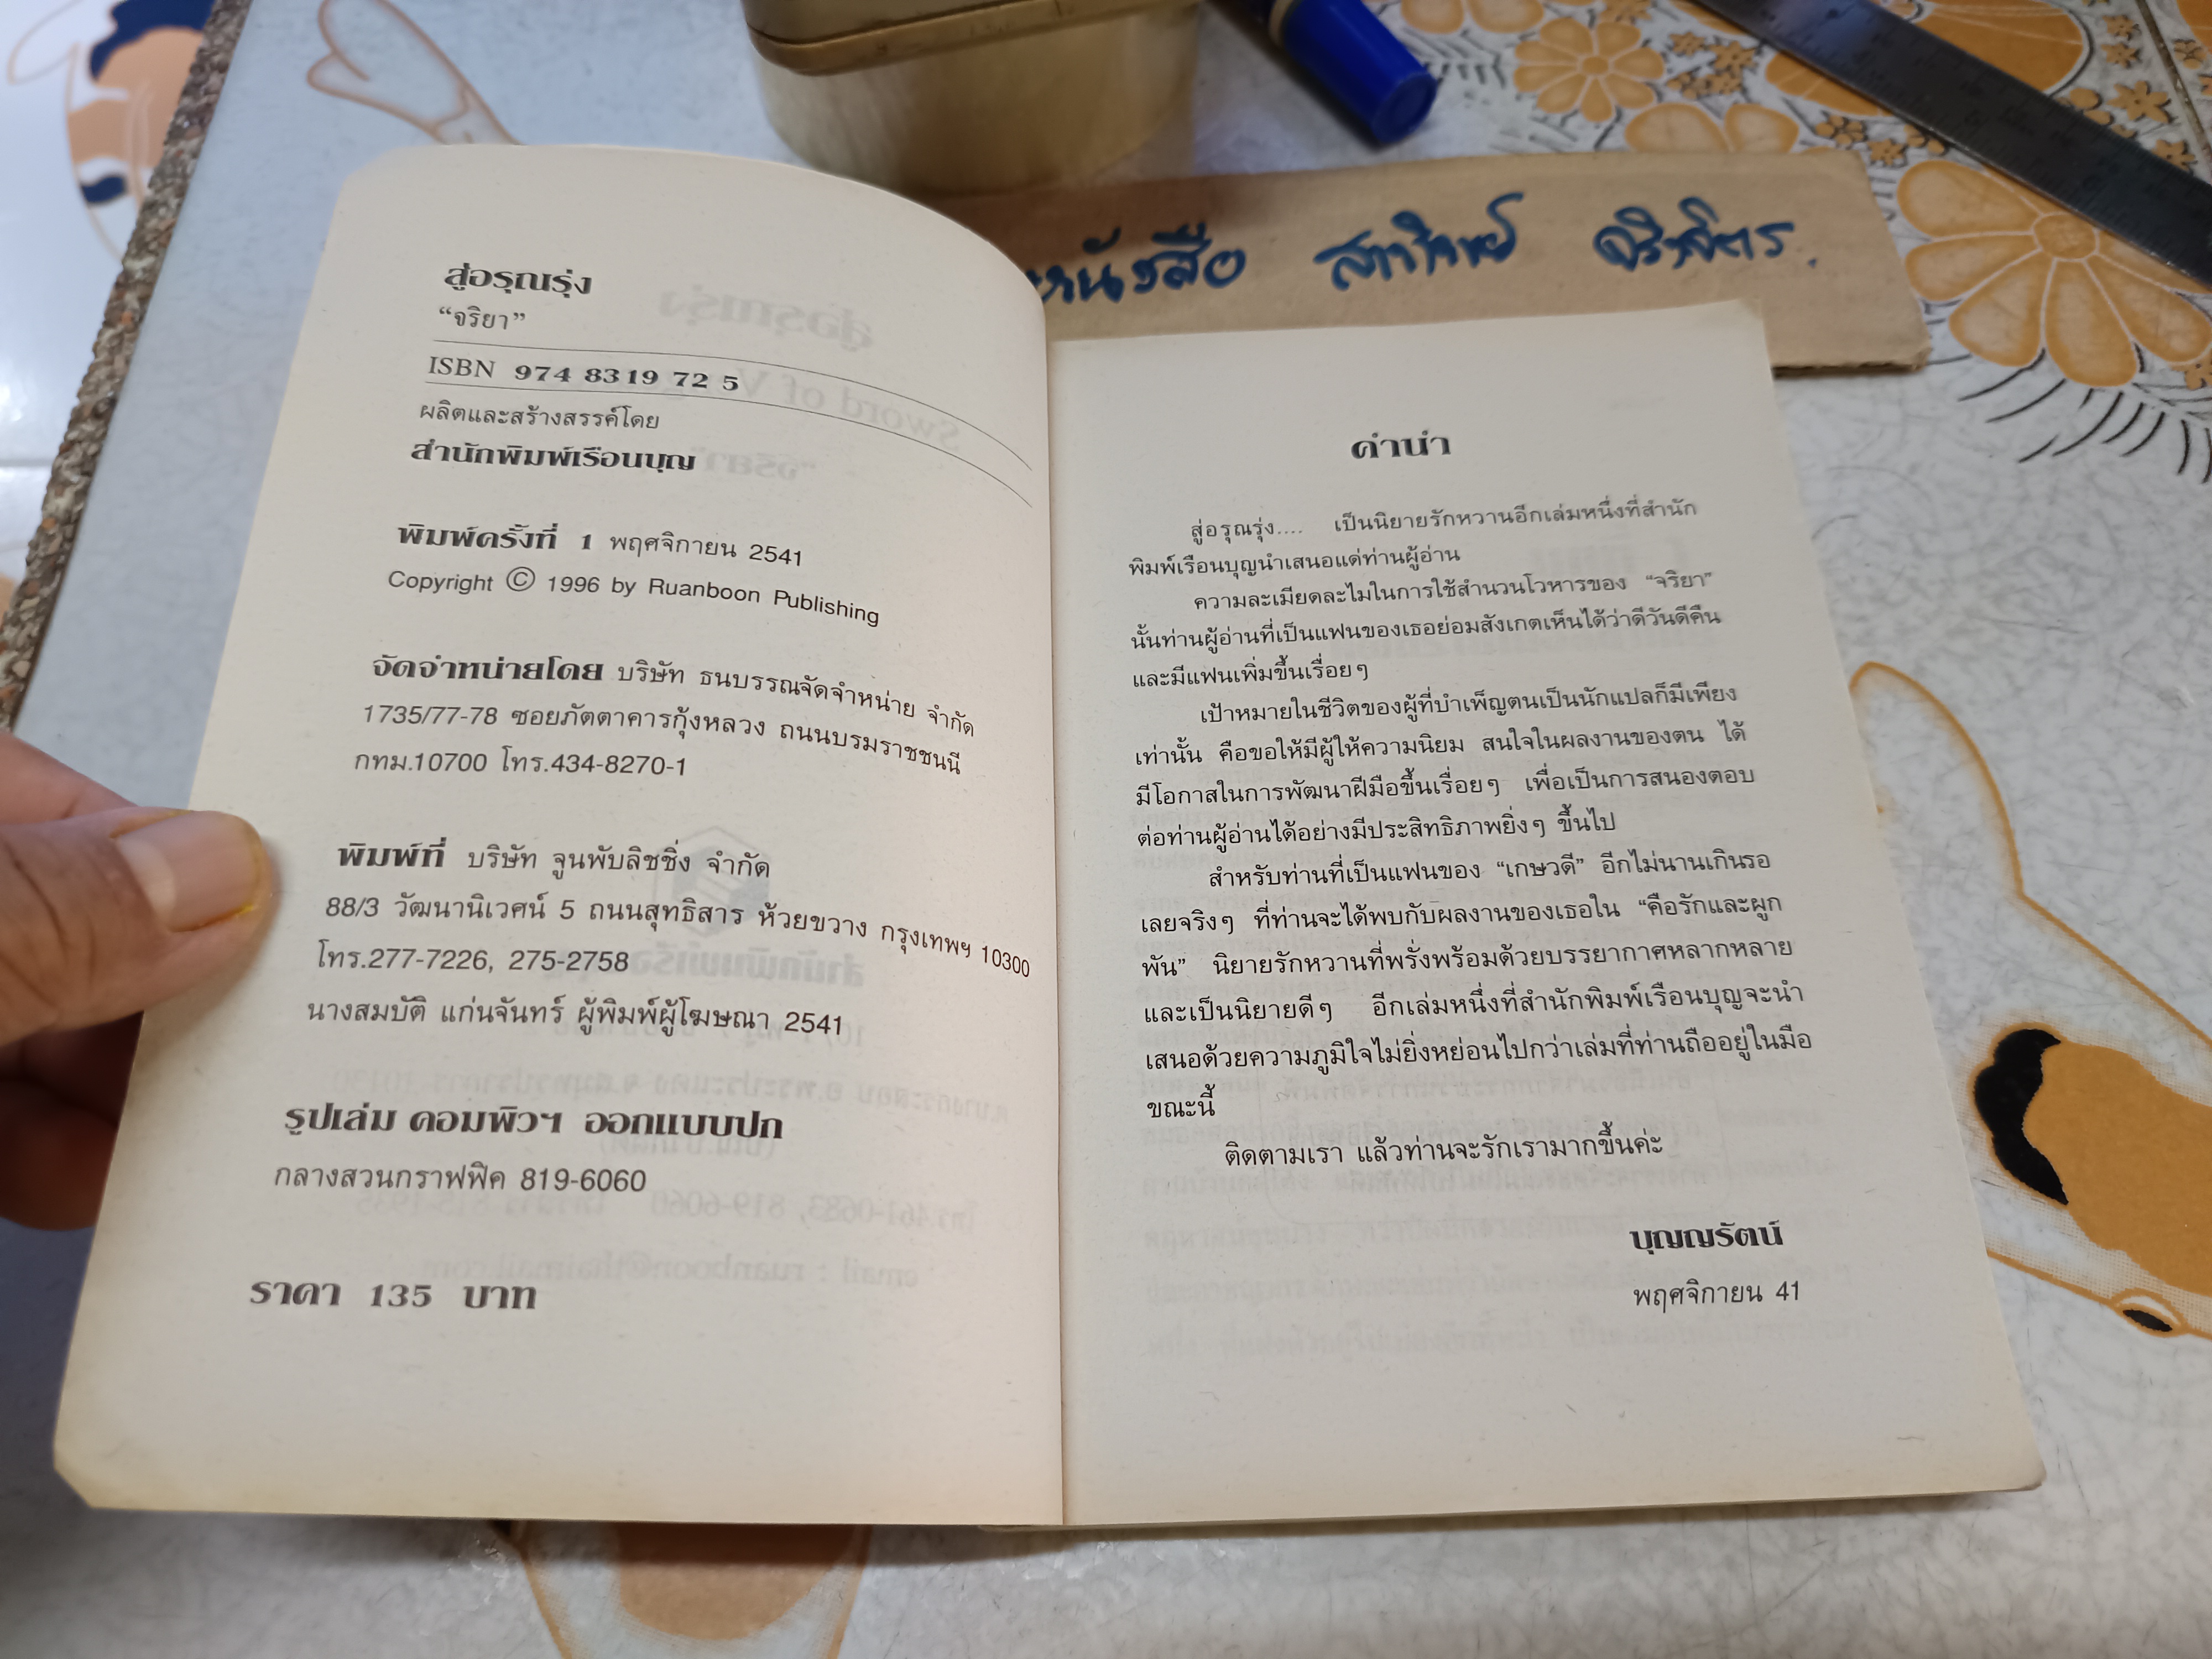 สู่อรุณรุ่ง
“จริยา”
ISBN 974 8319 72 5
ผลิตและสร้างสรรค์โดย
สำนักพิมพ์เรือนบุญ
พิมพ์ครั้งที่ 1 พฤศจิกายน 2541
Copyright © 1996 by Ruanboon Publishing
จัดจำหน่ายโดย บริษัท ธนบรรณจัดจำหน่าย จำกัด
1735/77-78 ซอยภัตตาคารกุ้งหลวง ถนนบรมราชชนนี
กทม.10700 โทร.434-8270-1
พิมพ์ที่ บริษัท จูนพับลิชชิ่ง จำกัด
88/3 วัฒนานิเวศน์ 5 ถนนสุทธิสาร ห้วยขวาง กรุงเทพฯ 10300
โทร.277-7226, 275-2758
นางสมบัติ แก่นจันทร์ ผู้พิมพ์ผู้โฆษณา 2541
รูปเล่ม คอมพิวฯ ออกแบบปก
กลางสวนกราฟฟิค 819-6060
ราคา 135 บาท
หนังสือ
คำนำ
สู่อรุณรุ่ง.... เป็นนิยายรักหวานอีกเล่มหนึ่งที่สำนัก
พิมพ์เรือนบุญนำเสนอแด่ท่านผู้อ่าน
ความละเมียดละไมในการใช้สำนวนโวหารของ “จริยา”
นั้นท่านผู้อ่านที่เป็นแฟนของเธอย่อมสังเกตเห็นได้ว่าดีวันดีคืน
และมีแฟนเพิ่มขึ้นเรื่อยๆ
เป้าหมายในชีวิตของผู้ที่บำเพ็ญตนเป็นนักแปลก็มีเพียง
เท่านั้น คือขอให้มีผู้ให้ความนิยม สนใจในผลงานของตน ได้
มีโอกาสในการพัฒนาฝีมือขึ้นเรื่อยๆ เพื่อเป็นการสนองตอบ
ต่อท่านผู้อ่านได้อย่างมีประสิทธิภาพยิ่งๆ ขึ้นไป
สำหรับท่านที่เป็นแฟนของ “เกษวดี” อีกไม่นานเกินรอ
เลยจริงๆ ที่ท่านจะได้พบกับผลงานของเธอใน “คือรักและผูก
พัน” นิยายรักหวานที่พรั่งพร้อมด้วยบรรยากาศหลากหลาย
และเป็นนิยายดีๆ อีกเล่มหนึ่งที่สำนักพิมพ์เรือนบุญจะนำ
เสนอด้วยความภูมิใจไม่ยิ่งหย่อนไปกว่าเล่มที่ท่านถืออยู่ในมือ
ขณะนี้
ติดตามเรา แล้วท่านจะรักเรามากขึ้นค่ะ
บุญญรัตน์
พฤศจิกายน 41